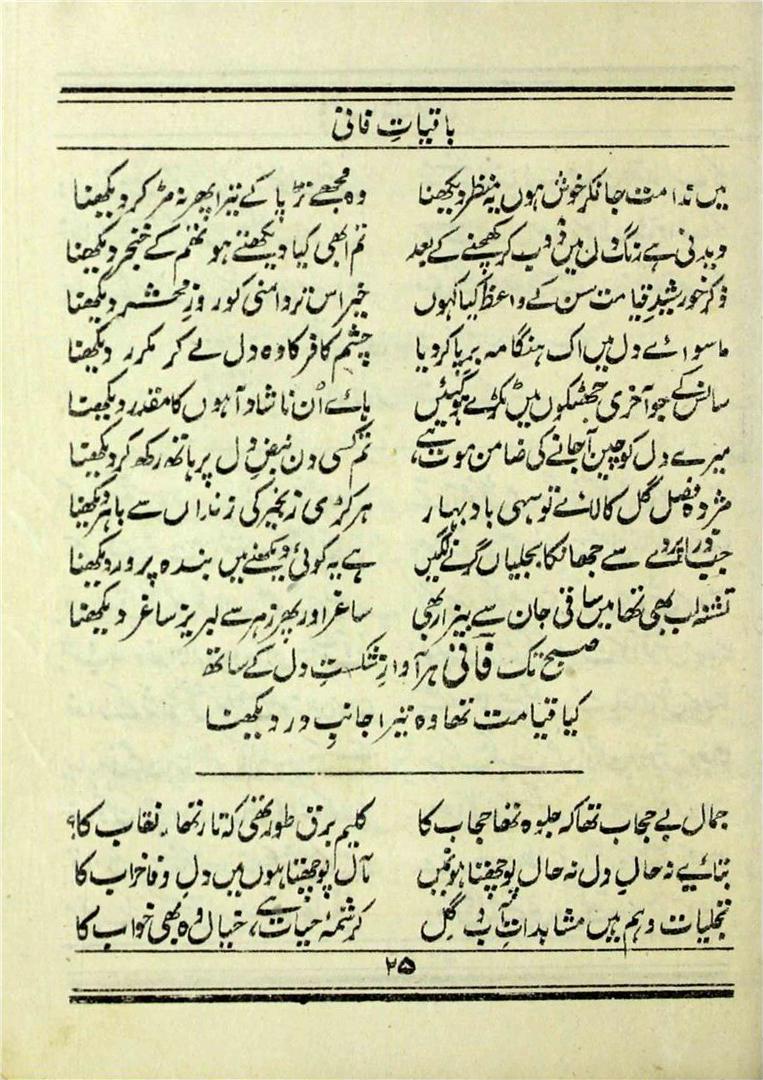 باقیاتِ فانی
میں ندامت جانکر خوش ہوں یہ منظر دیکھنا وہ مجھے تڑپا کے تیرا پھر نہ مڑ کر دیکھنا
دیدنی ہے رنگ دل میں ڈوب کر کھچنے کے بعد تم ابھی کیا دیکھتے ہو تھم کے خنجر دیکھنا
ذکر خورشیدِ قیامت سن کے واعظ کیا کہوں خیر اس تر دامنی کو روزِ محشر دیکھنا
ماسوائے دل میں اک ہنگامہ برپا کر دیا چشم کافر کا وہ دل لے کر مکرر دیکھنا
سانس کے جو آخری جھٹکوں میں ٹکڑے ہو گئیں ہائے اُن ناشاد آہوں کا مقدر دیکھنا
میرے دل کو چین آ جانے کی ضامن موت ہے، تم کسی دن نبضِ دل پر ہاتھ رکھ کر دیکھنا
مژدہ فصل گل کا لائے تو سہی بادِ بہار ہر کڑی زنجیر کی زنداں سے باہر دیکھنا
جب ذرا پردے سے جھانکا بجلیاں گرنے لگیں ہے یہ کوئی دیکھنے میں بندہ پرور دیکھنا
تشنہ لب بھی تھا میں ساقی جان سے بیزار بھی ساغر اور پھر زہر سے لبریز ساغر دیکھنا
صبح تک فانی ہر آوازِ شکستِ دل کے ساتھ
کیا قیامت تھا وہ تیرا جانبِ در دیکھنا
جمال بے حجاب تھا کہ جلوہ تھا حجاب کا کلیم برق طور تھی کہ تار تھا، نقاب کا؟
بتائیے نہ حالِ دل نہ حال پوچھتا ہوں میں مآل پوچھتا ہوں میں دلِ وفا خراب کا
تجلیات وہم ہیں مشاہداتِ آب و گِل کرشمۂ حیات ہے، خیال وہ بھی خواب کا
۲۵